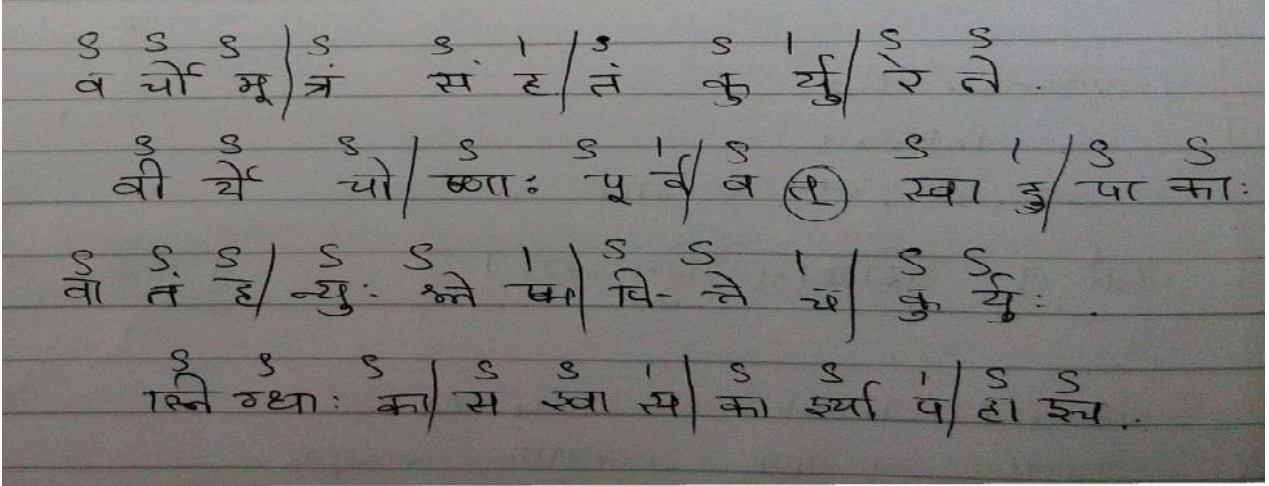 S S S | S S । | S S । | S S
व र्चो मू | त्रं सं ह | तं कु र्यु | रे ते .
S S S | S S । | S S । | S S
वी र्ये चो | ष्णाः पू र्व | व त् स्वा दु | पा काः
S S S | S S । | S S । | S S
वा तं ह | न्युः श्ले ष्म | पि- त्ते च | कु र्युः .
S S S | S S । | S S । | S S
स्नि ग्धाः का | स श्वा स | का र्श्या प | हा श्च ..